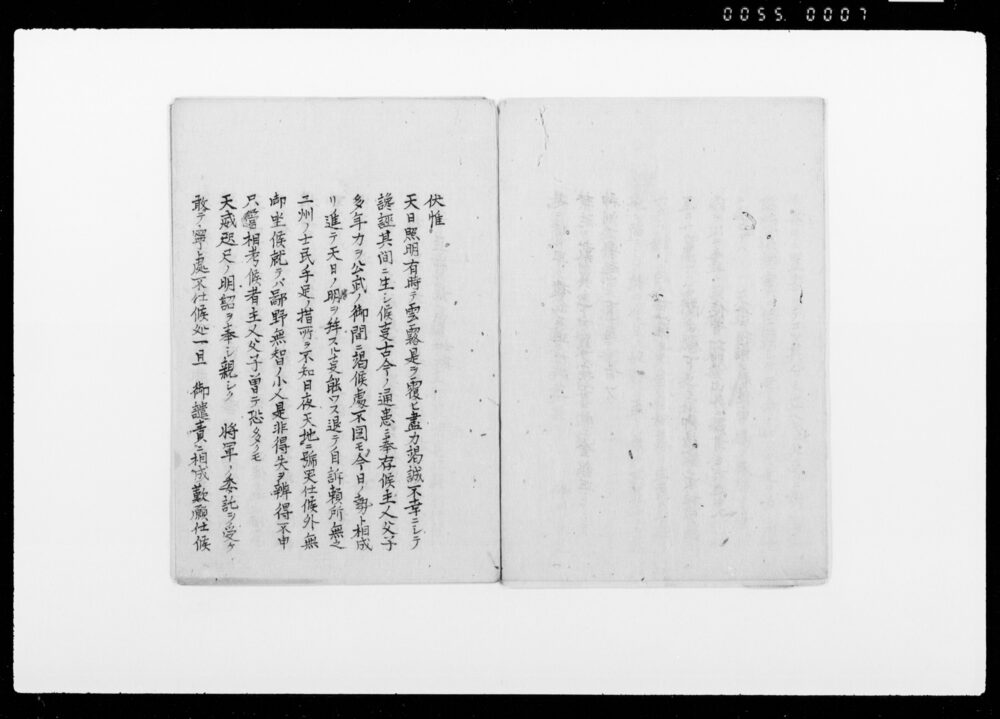 0055. 0007
伏惟
天日照明有時テ雲霧是ヲ覆ヒ盡力竭誠不幸ニシテ
讒誣其間ニ生シ候事古今ノ通患ニ奉存候主人父子
多年力ヲ公武ノ御間ニ竭候處不図モ今日ノ勢ト相成
リ進テ天日ノ明ヲ拜スル事能ワス退テ自訴頼所無之
二州ノ士民手足ノ措所ヲ不知日夜天地ニ號哭仕候外無
御坐候就テハ鄙野無智ノ小人是非得失ヲ辨得不申
只管相考候者主人父子曽テ恐多クモ
天威咫尺ノ明詔ヲ奉シ親シク 将軍ノ委託ヲ受ケ
敢テ寧處不仕候処一旦 御譴責ニ相成歎願仕候